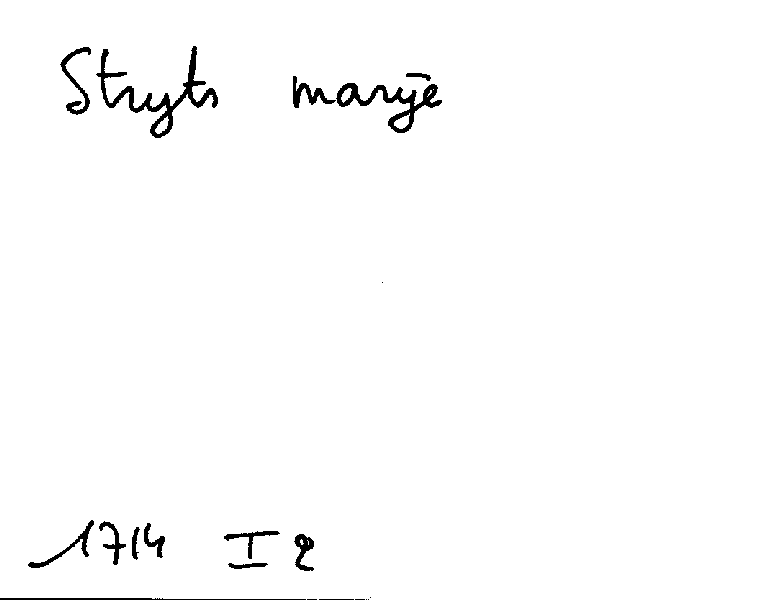 Stryts maryẽ
1714 I 2